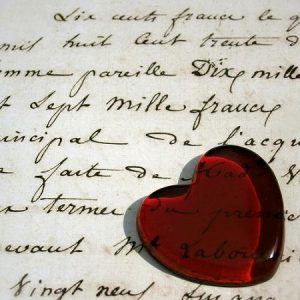 Six cent francs le q
mil huit Cent trente d
omme pareille Dix mille
t Sept Mille francs
incipal de l'acqu
faite de
ux termes du premie
evant Me Labou
Vingt neuf